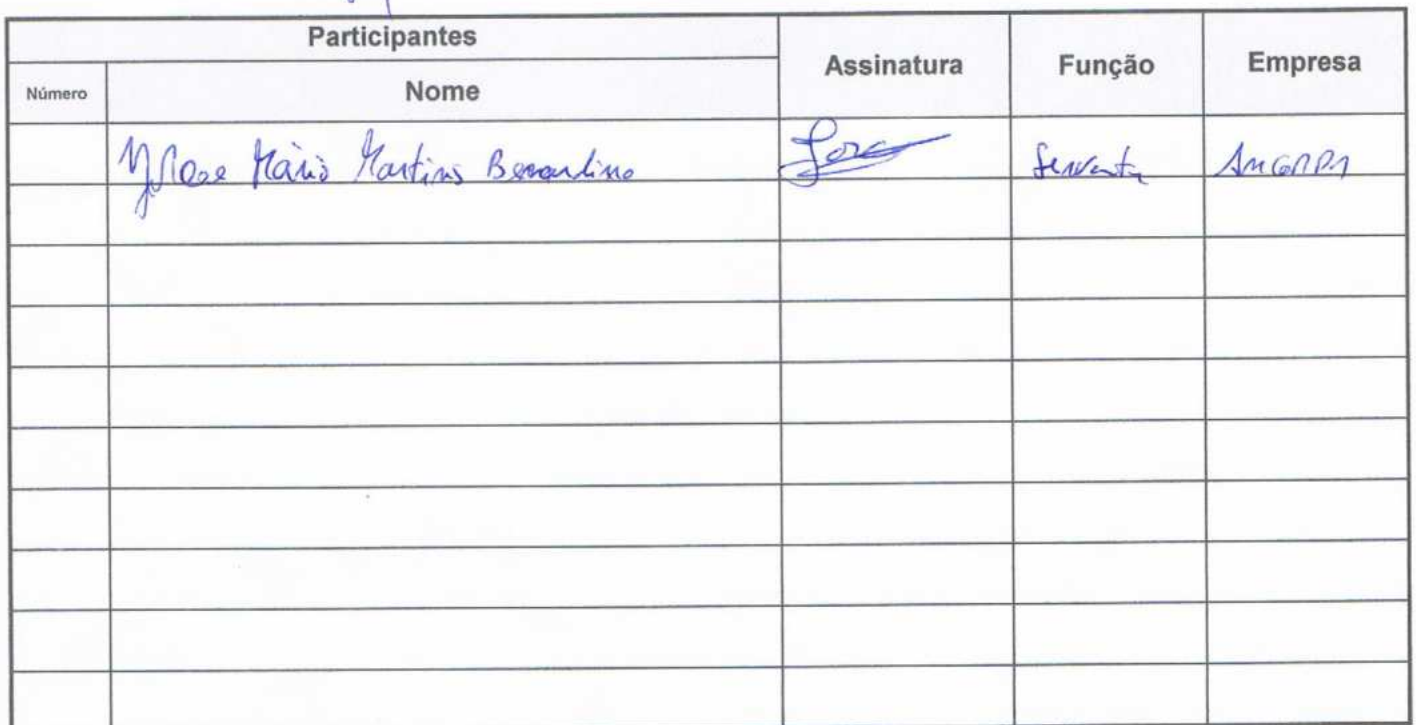 Participantes
Assinatura
Função
Empresa
Número
Nome
Mário Martins Bernardino
Servente